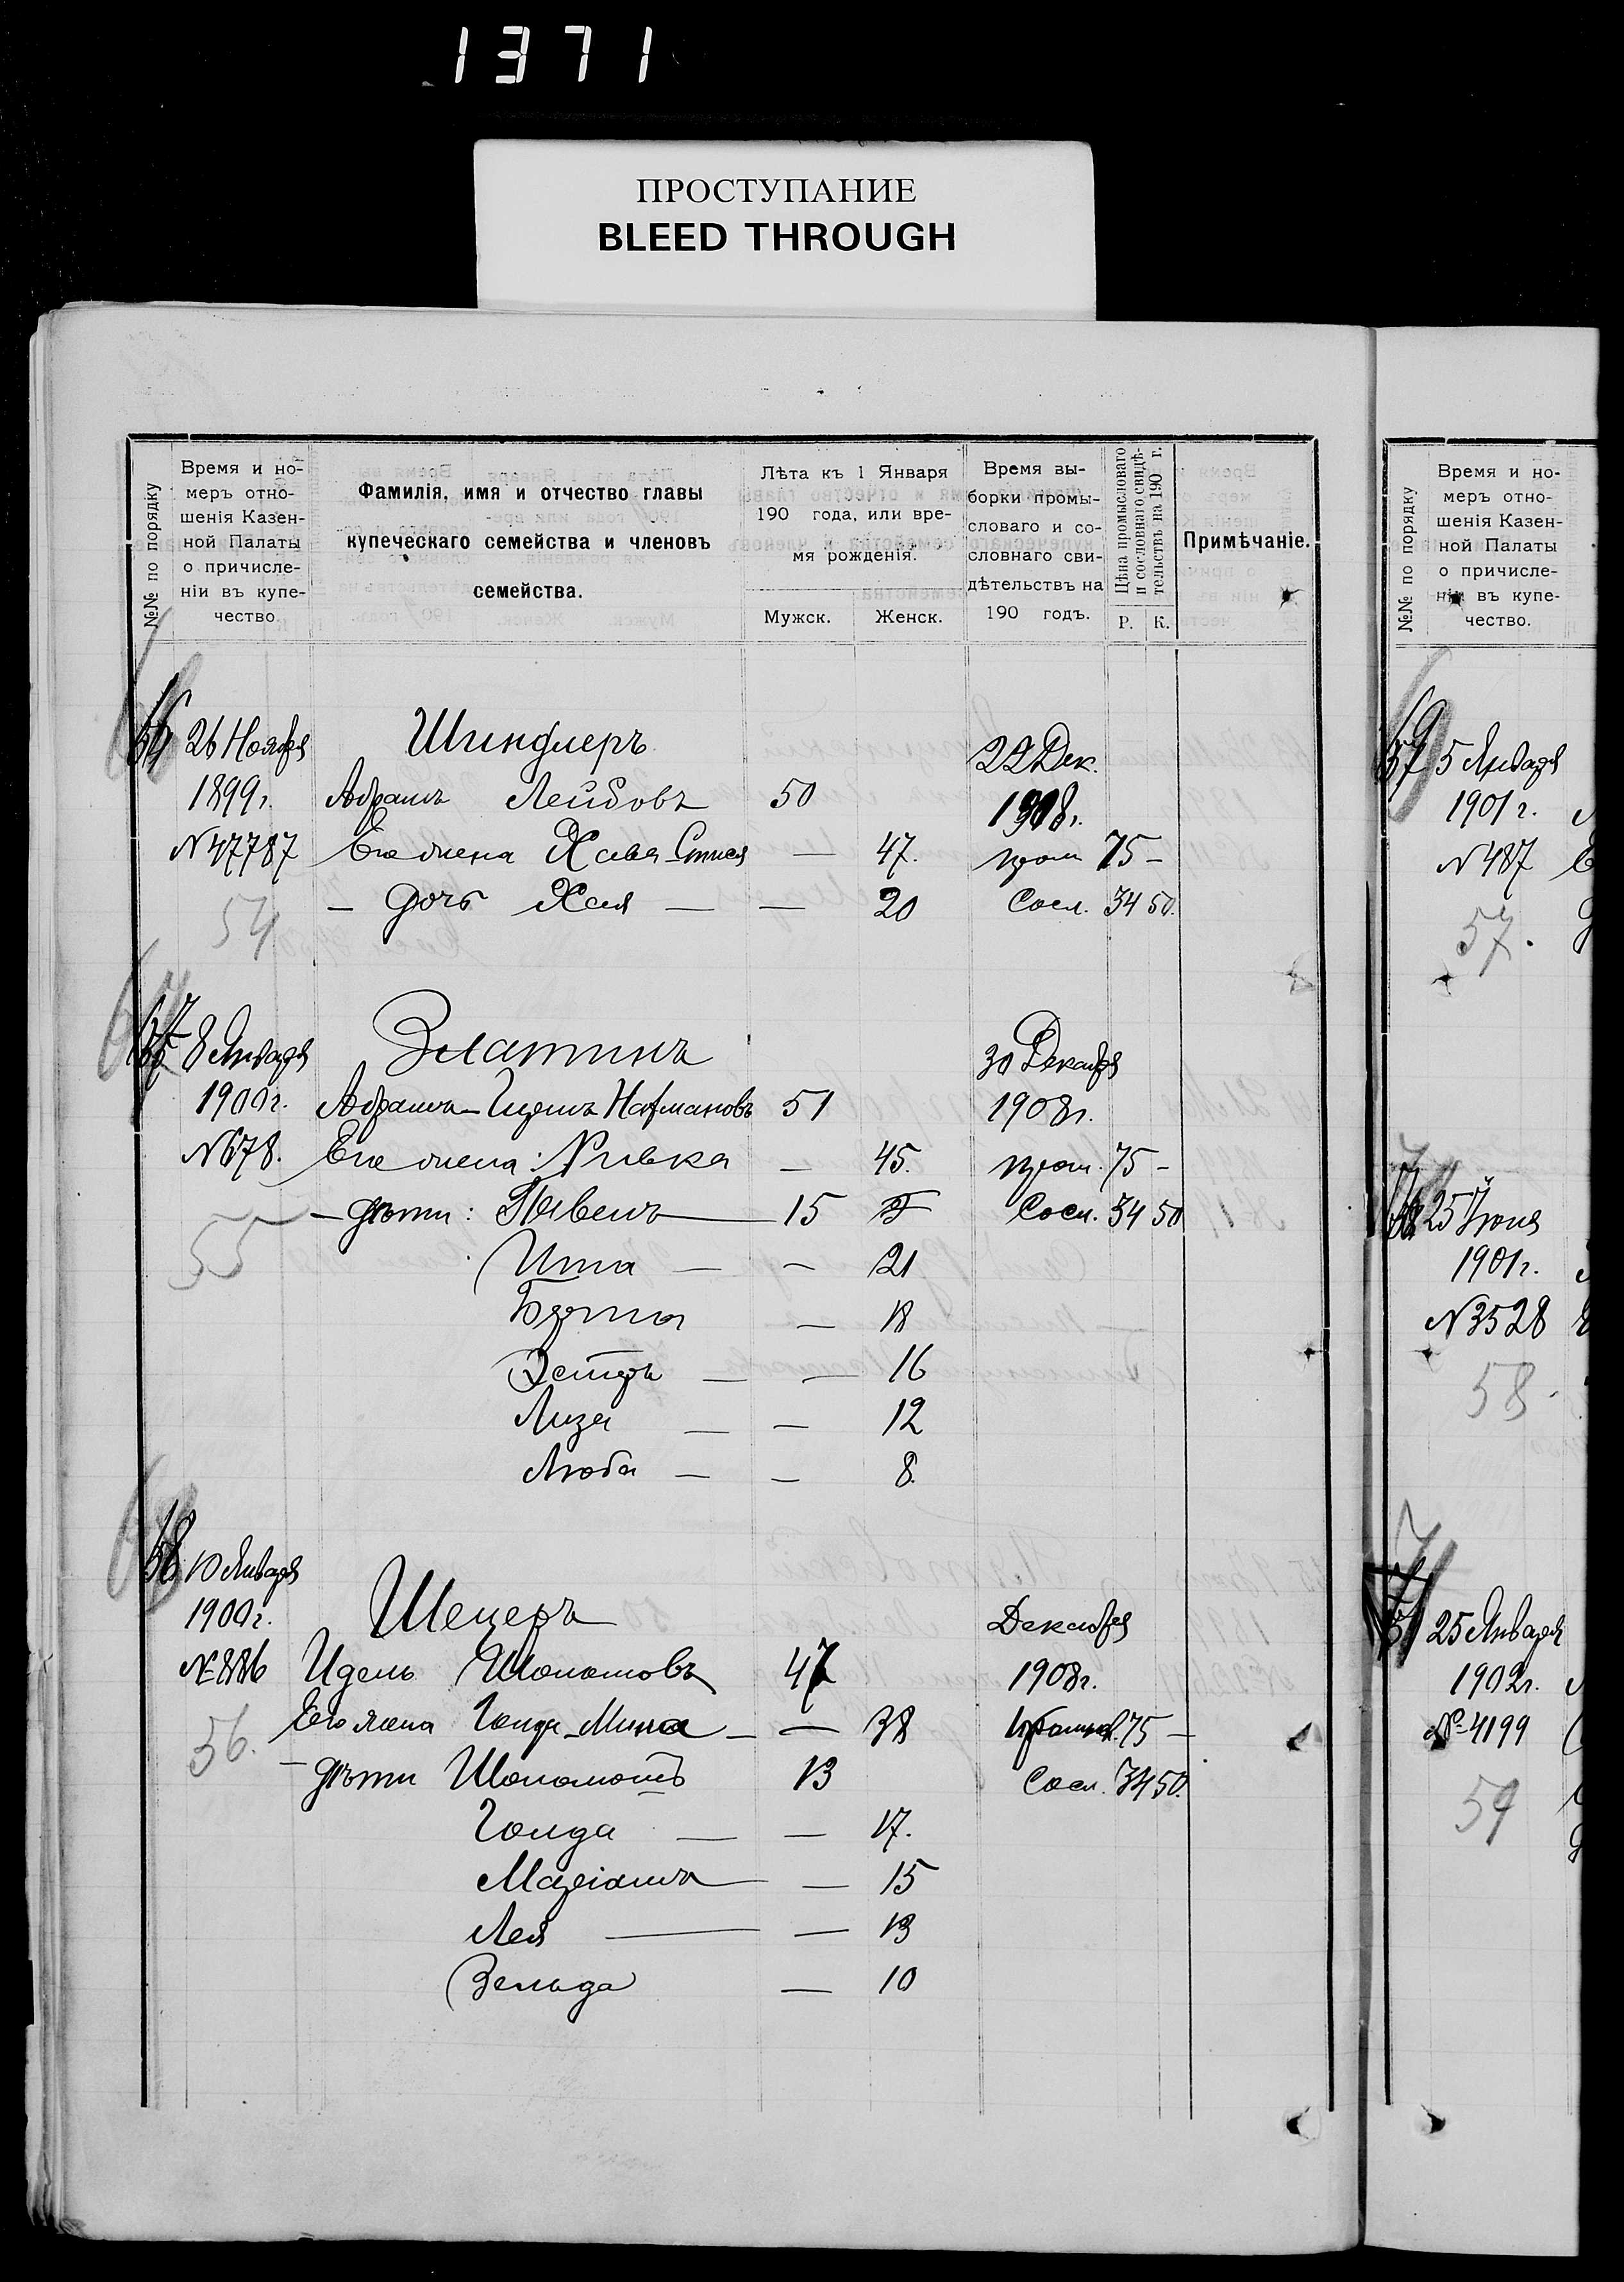 1371
ПРОСТУПАНИЕ
BLEED THROUGH
№№ по порядку
Время и но-
меръ отно-
шенія Казен-
ной Палаты
о причисле-
ніи въ купе-
чество
Фамилія, имя и отчество главы
купеческаго семейства и членовъ
семейства.
Лѣта къ 1 Января
190 года, или вре-
мя рожденія.
Мужск. Женск.
Время вы-
борки промы-
словаго и со-
словнаго сви-
дѣтельствъ на
190 годъ.
Цѣна промысловаго
и сословнаго свидѣ-
тельствъ на 190 г.
Р. К.
Примѣчаніе.
26 Ноября Шиндлеръ 22 Дек.
1899г. Абрамъ Лейбовъ 50 1908г.
N 47787 Его жена Хава 47. пром 75 –
– дочь Хая — — 20 Сосл. 34 50.
54
8 Января Златинъ 30 Декабря
1900г. Абрамъ Нахмановъ 51 1908г.
N 678. Его жена: Ривка — 45. пром. 75 –
– дѣти: 15 Сосл. 34 50
55
Ита — — 21
Берта — 18
Эстеръ — — 16
Лиза — — 12
Люба — — 8.
10 Января
1900г. Шецеръ Декабря
№ 886 Идель Шоломовъ 47 1908г.
Его жена Мина — — 38 75 —
56. – дѣти Шоломонъ 13 Сосл. 34 50.
Голда — — 17.
Маріамъ — — 15
Лея — — 13
Зельда — 10
№№ по порядку
Время и но-
меръ отно-
шенія Казен-
ной Палаты
о причисле-
ніи въ купе-
чество.
5 Января
1901г.
N 487
57.
25 Іюня
1901г.
N 3528
58.
25 Января
1902г.
№ 4199
59